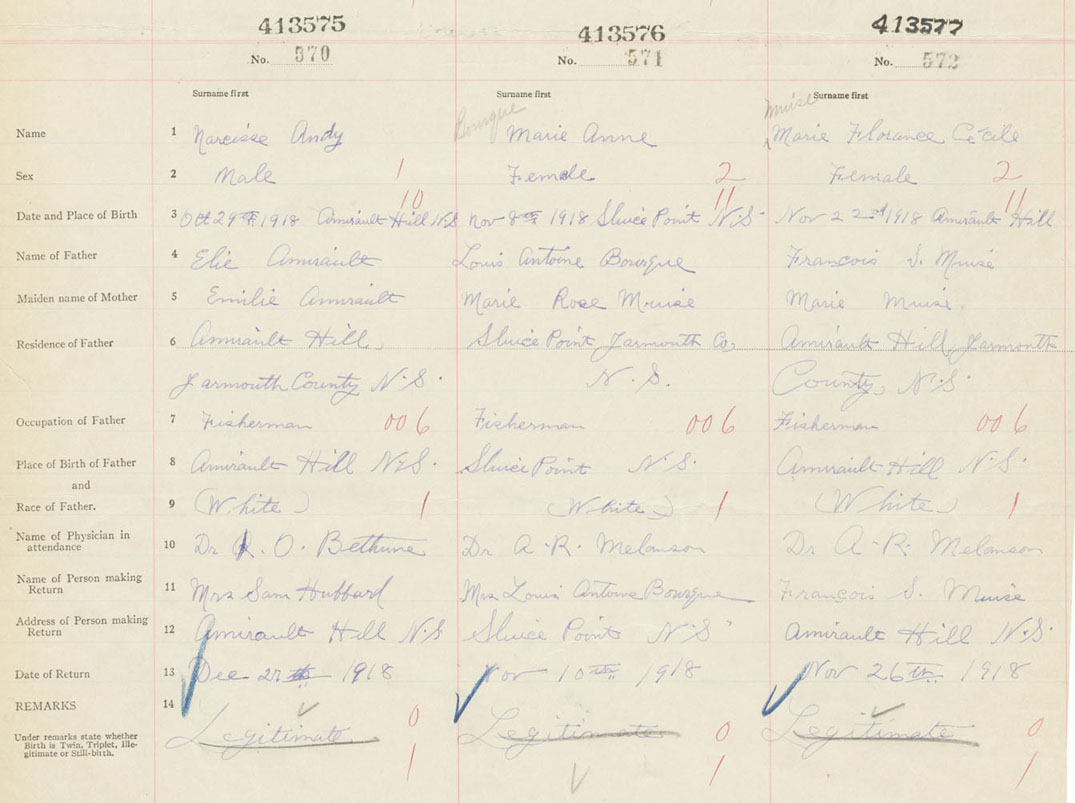 413575 413576 413577
No. 570 No. 571 No. 572
Surname first Surname first Surname first
Bourque Muise
Name 1 Narcisse Andy Marie Anne Marie Florance Cécile
Sex 2 Male 1 Female 2 Female 2
10 11 11
Date and Place of Birth 3 Oct 29th 1918 Amirault Hill N.S Nov 8th 1918 Sluice Point N.S. Nov 22nd 1918 Amirault Hill
Name of Father 4 Elie Amirault Louis Antoine Bourque François S. Muise
Maiden name of Mother 5 Emilie Amirault Marie Rose Muise Marie Muise
Residence of Father 6 Amirault Hill, Sluice Point Yarmouth Co, Amirault Hill, Yarmouth
Yarmouth County N.S. N.S. County, N.S.
Occupation of Father 7 Fisherman 006 Fisherman 006 Fisherman 006
Place of Birth of Father 8 Amirault Hill N.S. Sluice Point N.S. Amirault Hill N.S.
and
Race of Father. 9 (White) 1 (White) 1 (White) 1
Name of Physician in
attendance 10 Dr O. Bethune Dr A.R. Melanson Dr A.R. Melanson
Name of Person making
Return 11 Mrs Sam Hubbard Mrs Louis Antoine Bourque François S. Muise
Address of Person making
Return 12 Amirault Hill N.S Sluice Point N.S. Amirault Hill N.S.
Date of Return 13 Dec 1918 Nov 10th 1918 Nov 26th 1918
REMARKS 14
Under remarks state whether
Birth is Twin, Triplet, Ille-
gitimate or Still-birth.
Legitimate 0 Legitimate 0 Legitimate 0
1 1 1